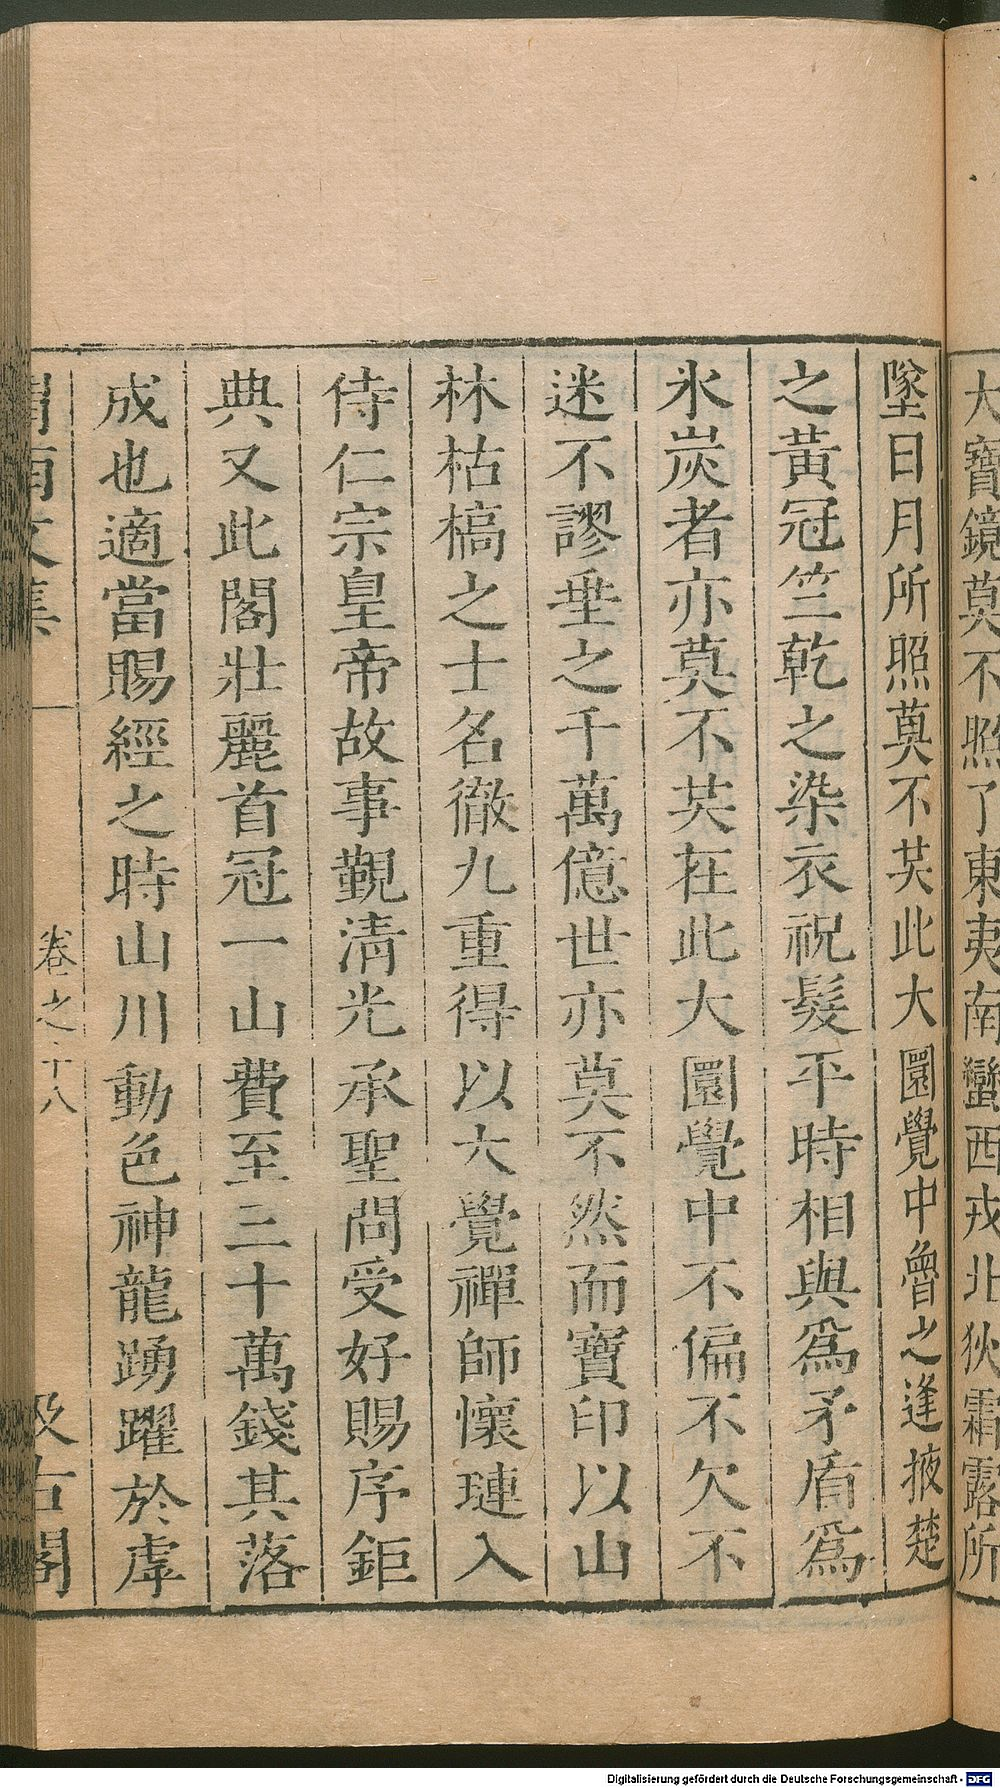 大寶鏡莫不照了東夷南蠻西戎北狄霜露所
墜日月所照莫不共此大圓覺中魯之逢掖楚
之黃冠竺乾之染衣祝髮平時相與爲矛盾爲
氷炭者亦莫不共在此大圓覺中不偏不欠不
迷不謬垂之千萬億世亦莫不然而寶印以山
林枯槁之士名徹九重得以大覺禪師懷璉入
侍仁宗皇帝故事覲清光承聖問受好賜序鉅
典又此閣壯麗首冠一山費至三十萬錢其落
成也適當賜經之時山川動色神龍踴躍於虖
渭南文集 卷之十八 汲古閣
Digitalisierung gefördert durch die Deutsche Forschungsgemeinschaft - DFG